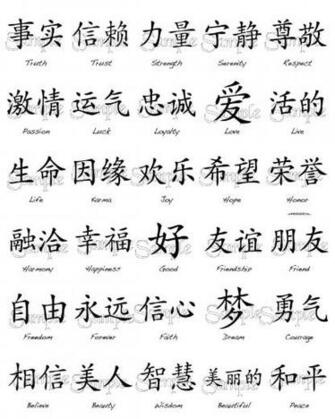 事实 信赖 力量 宁静 尊敬
Truth Trust Strength Serenity Respect
激情 运气 忠诚 爱 活的
Passion Luck Loyalty Love Live
生命 因缘 欢乐 希望 荣誉
Life Karma Joy Hope Honor
融洽 幸福 好 友谊 朋友
Harmony Happiness Good Friendship Friend
自由 永远 信心 梦 勇气
Freedom Forever Faith Dream Courage
相信 美人 智慧 美丽的 和平
Believe Beauty Wisdom Beautiful Peace